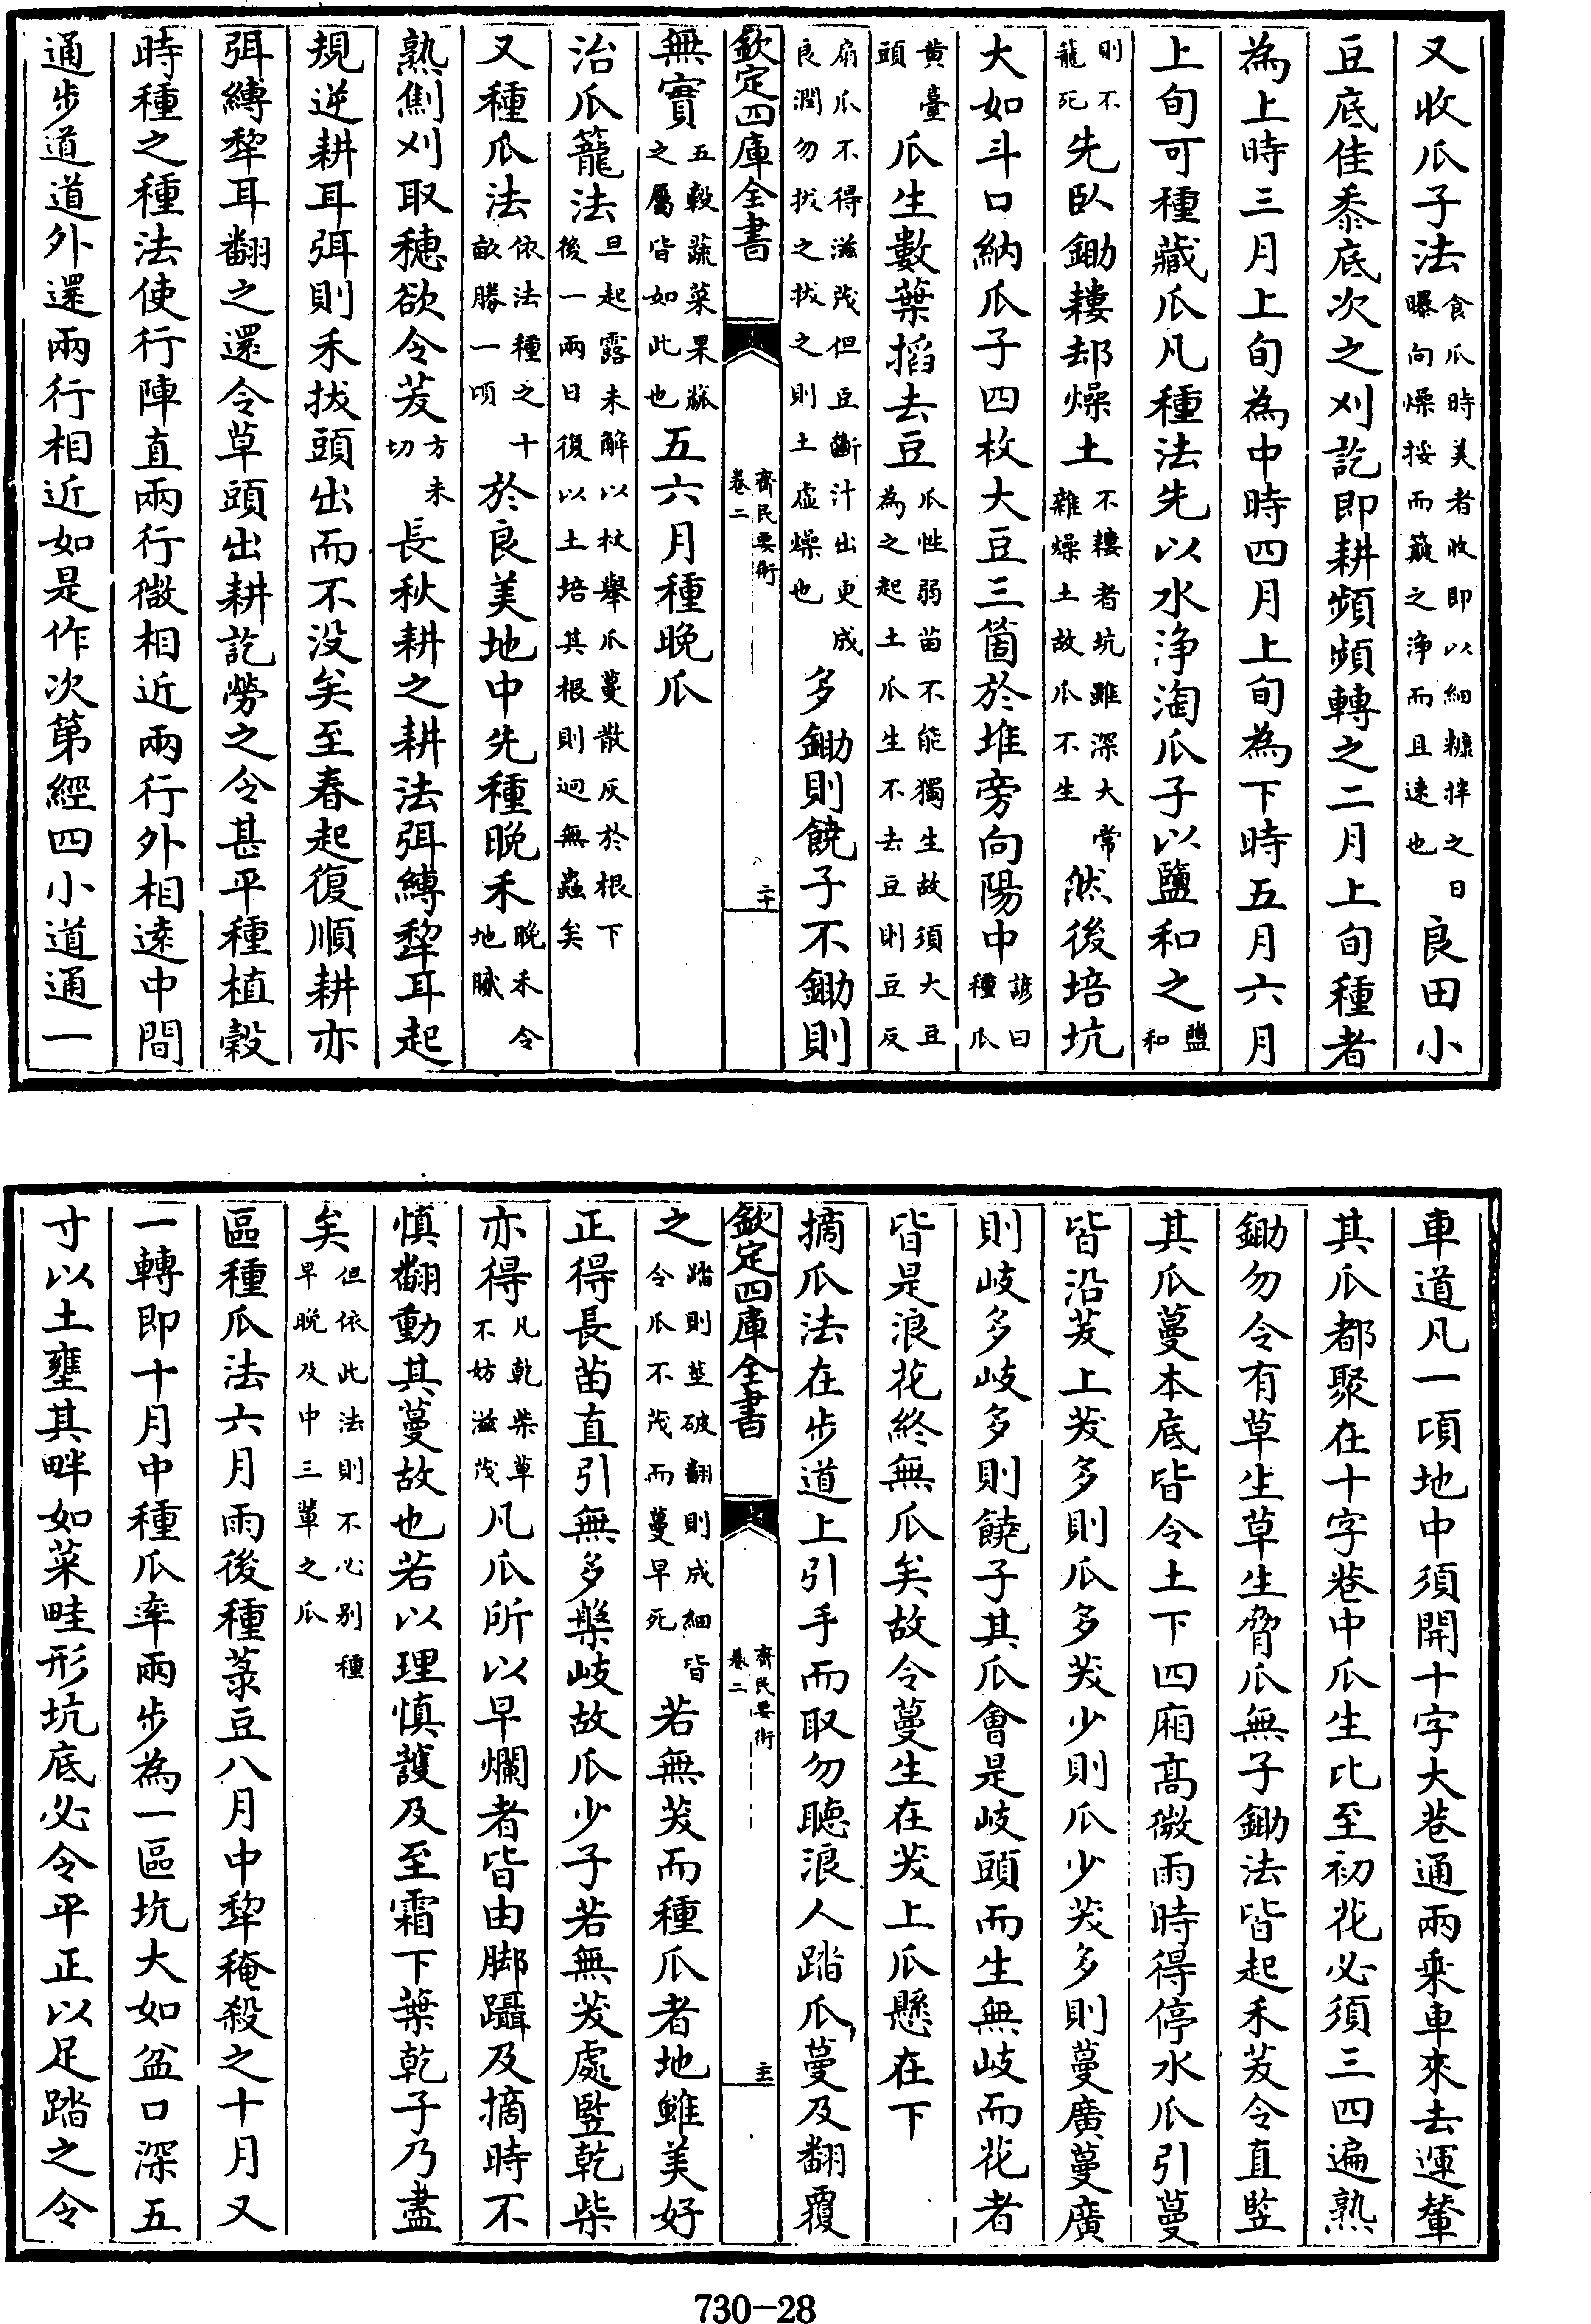 又收瓜子法食瓜時美者收即以細糠拌之日曝向燥挼而簸之淨而且速也良田小
豆底佳黍底次之刈訖即耕頻頻轉之二月上旬種者
為上時三月上旬為中時四月上旬為下時五月六月
上旬可種藏瓜凡種法先以水淨淘瓜子以鹽和之鹽和
則不籠死先臥鋤耬却燥土不耬者坑雖深大常雜燥土故瓜不生然後培坑
大如斗口納瓜子四枚大豆三箇於堆旁向陽中諺曰種瓜
黃臺頭瓜生數葉搯去豆瓜性弱苗不能獨生故須大豆為之起土瓜生不去豆則豆反
扇瓜不得滋茂但豆斷汁出更成良潤勿拔之拔之則土虛燥也多鋤則饒子不鋤則
欽定四庫全書 齊民要術 卷二 二十
無實五穀蔬菜果蓏之屬皆如此也五六月種晚瓜
治瓜籠法旦起露未解以杖舉瓜蔓散灰於根下後一兩日復以土培其根則迥無蟲矣
又種瓜法依法種之十畝勝一頃於良美地中先種晚禾晚禾令地膩
熟劁刈取穗欲令茇方末切長秋耕之耕法弭縛犂耳起
規逆耕耳弭則禾拔頭出而不沒矣至春起復順耕亦
弭縛犂耳翻之還令草頭出耕訖勞之令甚平種植穀
時種之種法使行陣直兩行微相近兩行外相遠中間
通步道道外還兩行相近如是作次第經四小道通一
車道凡一頃地中須開十字大巷通兩乘車來去運輦
其瓜都聚在十字巷中瓜生比至初花必須三四遍熟
鋤勿令有草生草生脅瓜無子鋤法皆起禾茇令直竪
其瓜蔓本底皆令土下四廂高微雨時得停水瓜引蔓
皆沿茇上茇多則瓜多茇少則瓜少茇多則蔓廣蔓廣
則岐多岐多則饒子其瓜會是岐頭而生無岐而花者
皆是浪花終無瓜矣故令蔓生在茇上瓜懸在下
摘瓜法在步道上引手而取勿聽浪人踏瓜蔓及翻覆
欽定四庫全書 齊民要術 卷二 主
之踏則莖破翻則成細皆令瓜不茂而蔓早死若無茇而種瓜者地雖美好
正得長苗直引無多槃岐故瓜少子若無茇處竪乾柴
亦得凡乾柴草不妨滋茂凡瓜所以早爛者皆由脚躡及摘時不
慎翻動其蔓故也若以理慎護及至霜下葉乾子乃盡
矣但依此法則不必別種早晚及中三輩之瓜
區種瓜法六月雨後種菉豆八月中犂䅖殺之十月又
一轉即十月中種瓜率兩步為一區坑大如盆口深五
寸以土壅其畔如菜畦形坑底必令平正以足踏之令
730-28